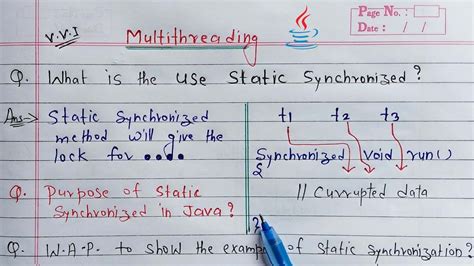 V.V.I
Multithreading
Page No. :
Date : / /
Q. What is the use Static Synchronized?
Ans→ Static Synchronized
method will give the
lock for ....
t1 t2 t3
Synchronized void run()
{
// Currupted data
}
Q. Purpose of Static
Synchronized in Java?
Q. W.A.P. to show the example of Static Synchronization?